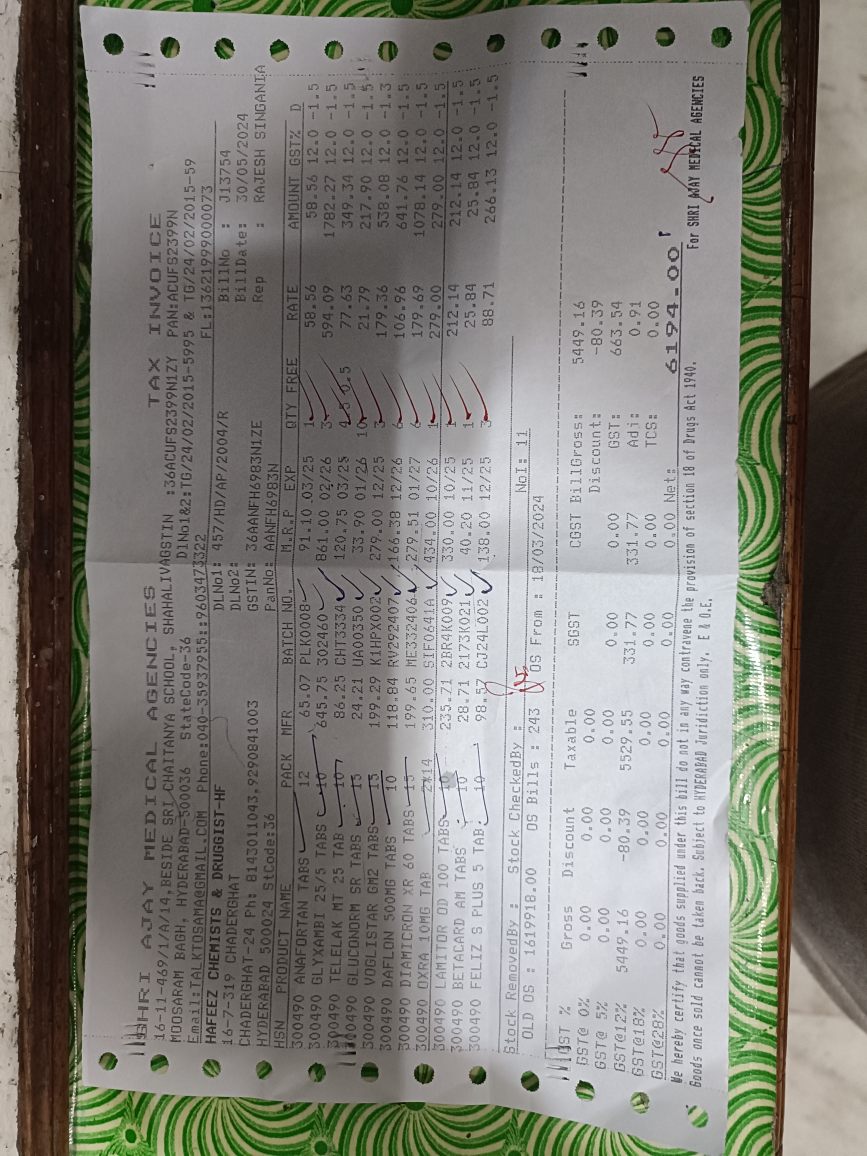 SHRI AJAY MEDICAL AGENCIES TAX INVOICE
16-11-469/1/A/14,BESIDE SRI CHAITANYA SCHOOL, SHAHALIVAGSTIN :36ACUFS2399N1ZY PAN:ACUFS2399N
MOOSARAM BAGH, HYDERABAD-500036 StateCode-36 DlNo1&2:TG/24/02/2015-5995 & TG/24/02/2015-59
Email:TALKTOSAMA@GMAIL.COM Phone:040-35937955::9603473322 FL:13621999000073
HAFEEZ CHEMISTS & DRUGGIST-HF DLNo1: 457/HD/AP/2004/R BillNo : J13754
16-7-319 CHADERGHAT DLNo2: BillDate: 30/05/2024
CHADERGHAT-24 Ph: 8143011043,9290841003 GSTIN: 36AANFH6983N1ZE Rep : RAJESH SINGANIA
HYDERABAD 500024 StCode:36 PanNo: AANFH6983N
HSN PRODUCT NAME PACK MFR BATCH NO. M.R.P EXP QTY FREE RATE AMOUNT GST% D
300490 ANAFORTAN TABS 12 65.07 PLK0008 91.10 03/25 1 58.56 58.56 12.0 -1.5
300490 GLYXAMBI 25/5 TABS 10 645.75 302460 861.00 02/26 3 594.09 1782.27 12.0 -1.5
300490 TELELAK MT 25 TAB 10 86.25 CHT3334 120.75 03/25 4.5 0.5 77.63 349.34 12.0 -1.5
300490 GLUCONORM SR TABS 15 24.21 UA00350 33.90 01/26 10 21.79 217.90 12.0 -1.5
300490 VOGLISTAR GM2 TABS 15 199.29 K1HPX002 279.00 12/25 3 179.36 538.08 12.0 -1.3
300490 DAFLON 500MG TABS 10 118.84 RV292407 166.38 12/26 6 106.96 641.76 12.0 -1.5
300490 DIAMICRON XR 60 TABS 15 199.65 ME332406 279.51 01/27 6 179.69 1078.14 12.0 -1.5
300490 OXRA 10MG TAB 2*14 310.00 SIF0641A 434.00 10/26 1 279.00 279.00 12.0 -1.5
300490 LAMITOR OD 100 TABS 10 235.71 2BR4K009 330.00 10/25 1 212.14 212.14 12.0 -1.5
300490 BETACARD AM TABS 10 28.71 2173K021 40.20 11/25 1 25.84 25.84 12.0 -1.5
300490 FELIZ S PLUS 5 TAB 10 98.57 CJ24L002 138.00 12/25 3 88.71 266.13 12.0 -1.5
Stock RemovedBy : Stock CheckedBy : NoI: 11
OLD OS : 1619918.00 OS Bills : 243 OS From : 18/03/2024
GST % Gross Discount Taxable SGST CGST BillGross: 5449.16
GST@ 0% 0.00 0.00 0.00 Discount: -80.39
GST@ 5% 0.00 0.00 0.00 0.00 0.00 GST: 663.54
GST@12% 5449.16 -80.39 5529.55 331.77 331.77 Adj: 0.91
GST@18% 0.00 0.00 0.00 0.00 0.00 TCS: 0.00
GST@28% 0.00 0.00 0.00 0.00 0.00 Net: 6194.00
We hereby certify that goods supplied under this bill do not in any way contravene the provision of section 18 of Drugs Act 1940.
Goods once sold cannot be taken back. Subject to HYDERABAD Juridiction only. E & O.E. For SHRI AJAY MEDICAL AGENCIES